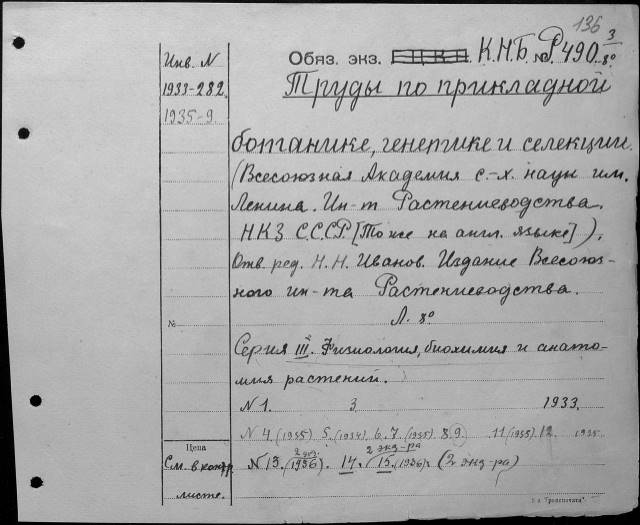 136
Обяз. экз. К.Н.Б. № Р490 3/8°
Инв. N
1933-282.
1935-9.
Труды по прикладной
ботанике, генетике и селекции.
(Всесоюзная Академия с.-х. наук им.
Ленина. Ин-т Растениеводства.
НКЗ С.С.С.Р. [То же на англ. языке]).
Отв. ред. Н. Н. Иванов. Издание Всесоюз-
ного ин-та Растениеводства.
Л. 8°
№
Серия III. Физиология, биохимия и анато-
мия растений.
N 1. 3 1933.
N 4. (1935) 5. (1934). 6. 7. (1935) 8. 9. 11 (1935). 12. 1935
Цена
См. в контр.
листе.
2 экз. 2 экз-ра
N 13. (1936). 14. 15. (1936). (2 экз-ра)